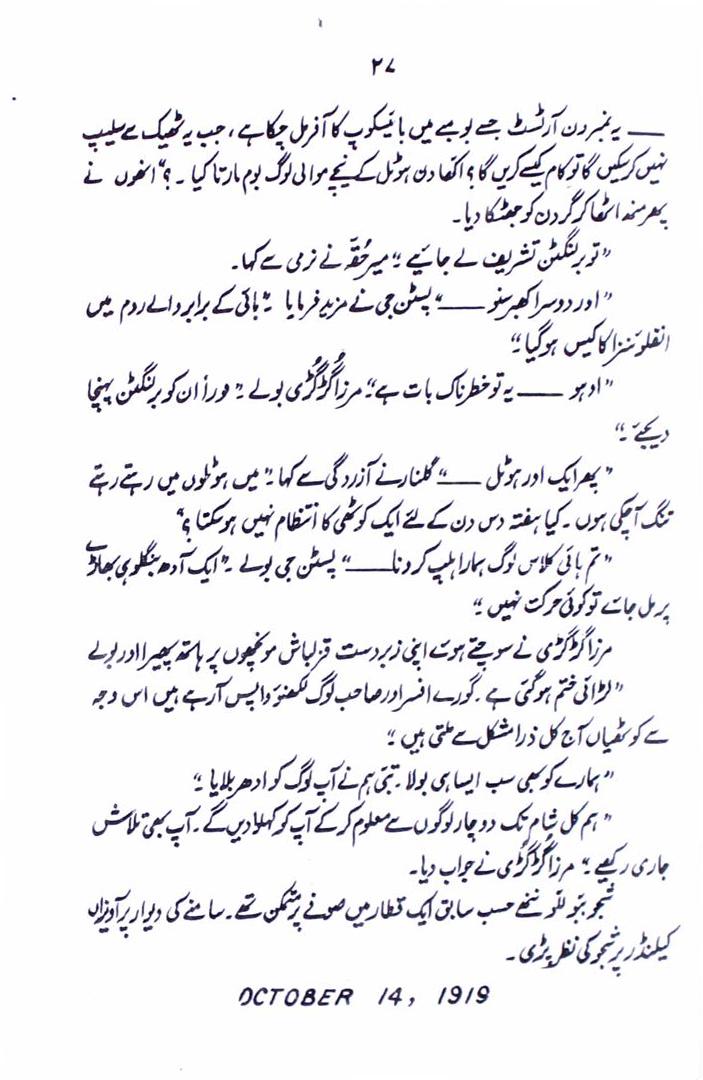 ۲۷
—— یہ نمبر دن آرٹسٹ جسے بومبے میں بائیسکوپ کا آفر مل چکا ہے، جب یہ ٹھیک سے سلیپ
نہیں کر سکیں گا تو کام کیسے کریں گا؟ اکھا دن ہوٹل کے نیچے موالی لوگ بوم مارتا کیا ۔ ؟“ انھوں نے
پھر منہ اٹھا کر گردن کو جھٹکا دیا۔
”تو برلنگٹن تشریف لے جائیے۔“ میر حُقّہ نے نرمی سے کہا۔
”اور دوسرا کھبر سنو ——“ پسٹن جی نے مزید فرمایا۔ ”بائی کے برابر والے روم میں
انفلوئنزا کا کیس ہو گیا۔“
”اوہو —— یہ تو خطرناک بات ہے۔“ مرزا گُڑگُڑی بولے۔ ”فوراً ان کو برلنگٹن پہنچا
دیجئے۔“
”پھر ایک اور ہوٹل ——“ گلنار نے آزردگی سے کہا۔ ”میں ہوٹلوں میں رہتے رہتے
تنگ آ چکی ہوں۔ کیا ہفتہ دس دن کے لئے ایک کوٹھی کا انتظام نہیں ہو سکتا؟“
”تم ہائی کلاس لوگ ہمارا ہلپ کر دنا ——“ پسٹن جی بولے۔ ”ایک آدھ بنگلو ہی بھاڑے
پر مل جائے تو کوئی حرکت نہیں۔“
مرزا گڑگڑی نے سوچتے ہوئے اپنی زبردست قزلباش مونچھوں پر ہاتھ پھیرا اور بولے
”لڑائی ختم ہو گئی ہے۔ گورے افسر اور صاحب لوگ لکھنؤ واپس آ رہے ہیں اس وجہ
سے کوٹھیاں آج کل ذرا مشکل سے ملتی ہیں۔“
”ہمارے کو بھی سب ایسا ہی بولا۔ تبی ہم نے آپ لوگ کو ادھر بلایا۔“
”ہم کل شام تک دو چار لوگوں سے معلوم کر کے آپ کو کہلوا دیں گے۔ آپ بھی تلاش
جاری رکھیے۔“ مرزا گُڑگُڑی نے جواب دیا۔
شجو ببّو للّو ننھے حسب سابق ایک قطار میں صوفے پر متمکن تھے۔ سامنے کی دیوار پر آویزاں
کیلنڈر پر شجو کی نظر پڑی۔
OCTOBER 14, 1919